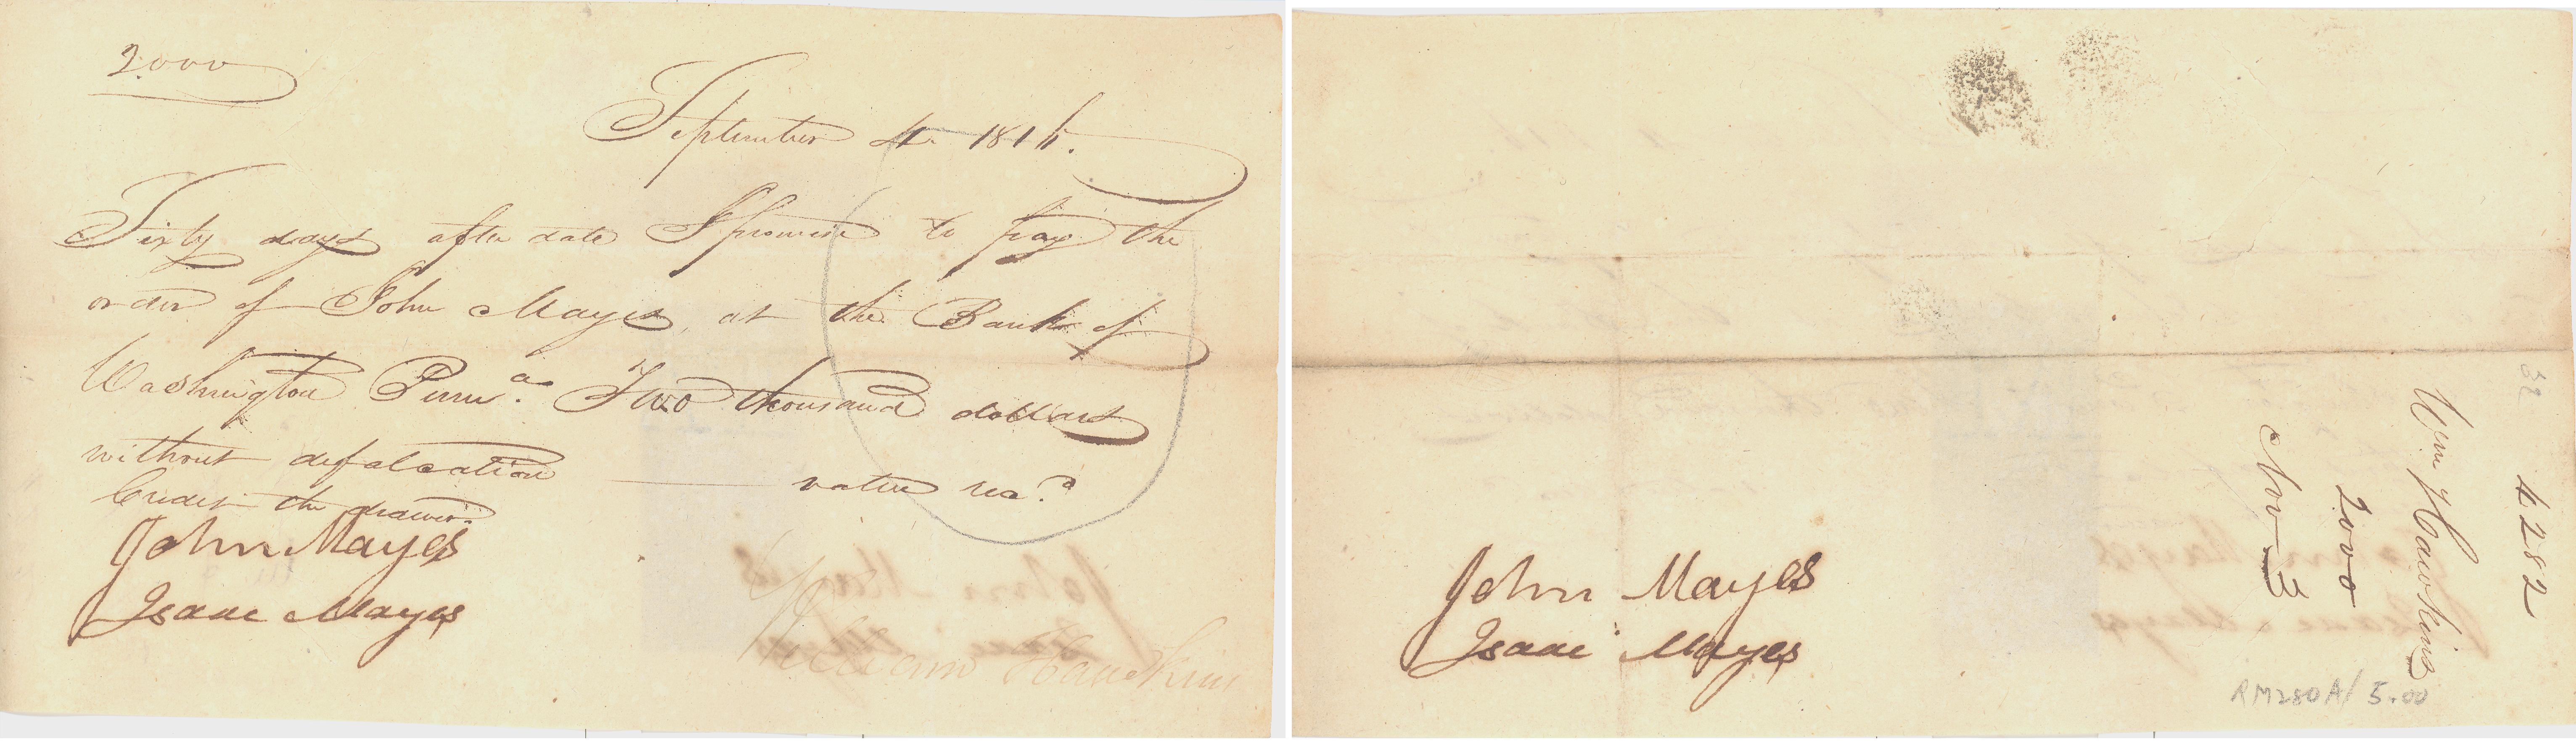 2000
September 4 1816.
Sixty days after date I promise to pay the
order of John Mayes, at the Bank of
Washington Penna. Two thousand dollars
without defalcation value recd
Credit the drawer.
John Mayes
Isaac Mayes
William Hawkins
John Mayes
Isaac Mayes
4282
Wm Hawkins
2000
Nov 3
RM280A/ 5.00